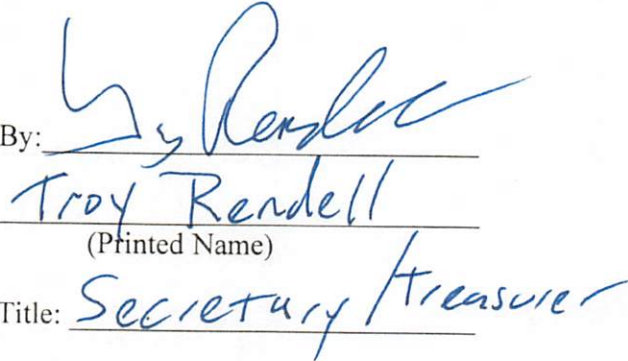 By: Troy Rendell
Troy Rendell
(Printed Name)
Title: Secretary/treasurer